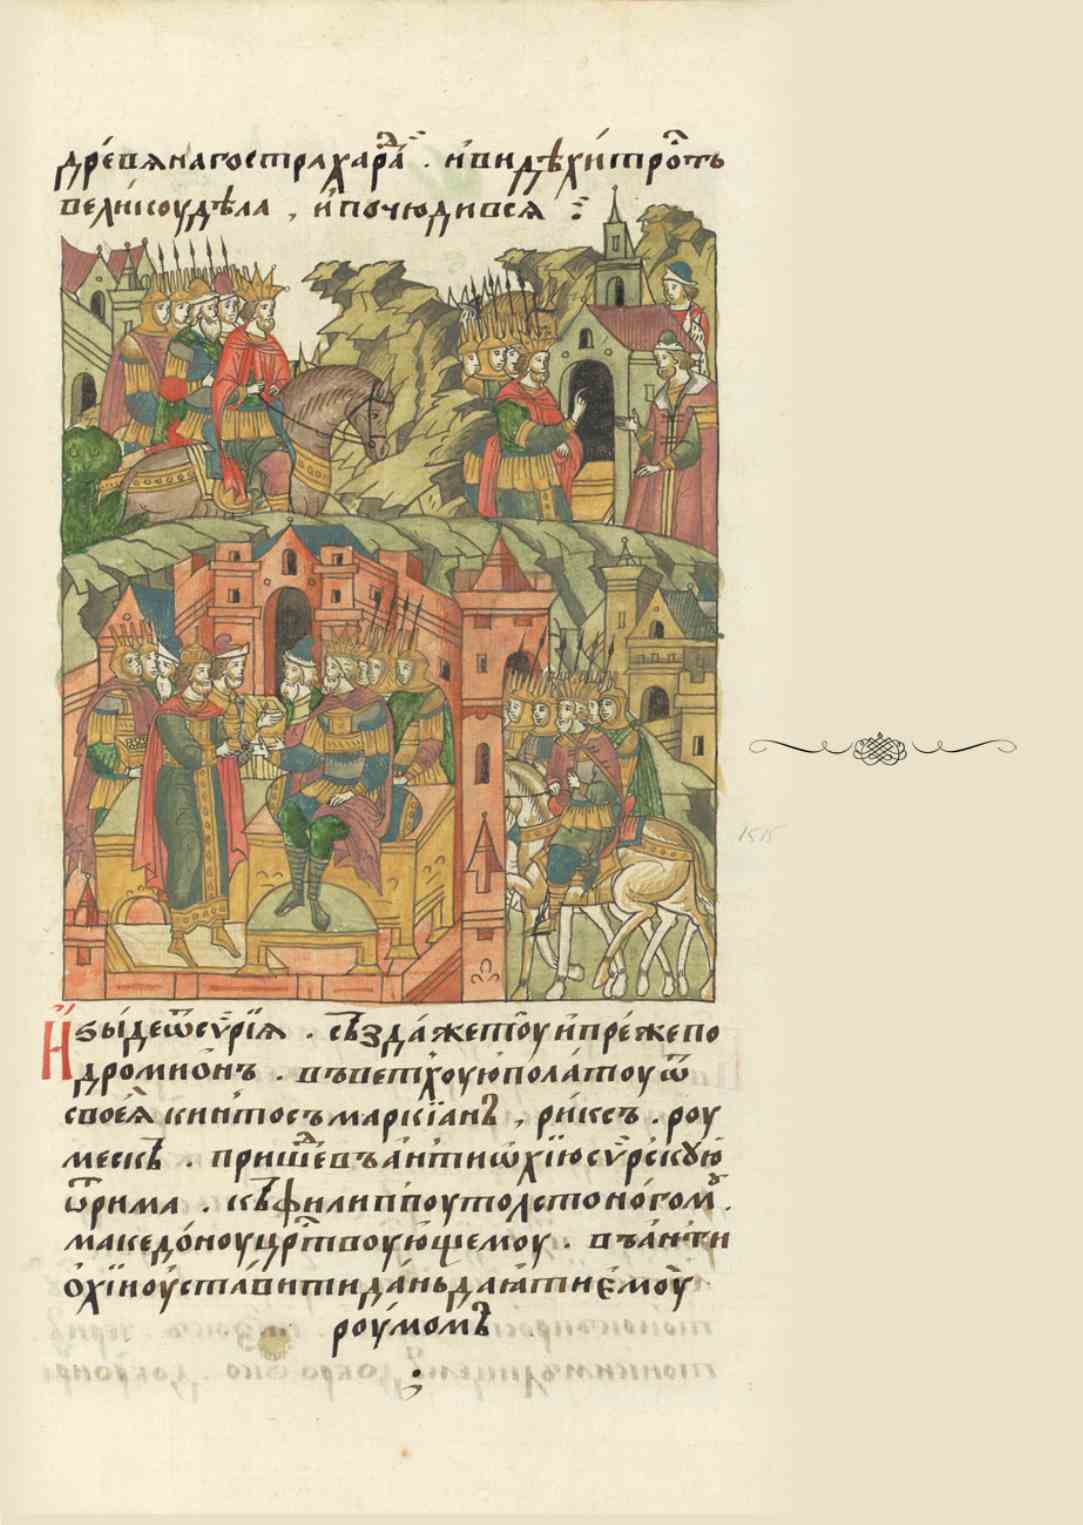 древѧнагостраха ра҃ . ивидѣхитрⷪ҇ть
великоудѣла , ипочюдивсѧ
Изыдеѿсѵрїѧ . създа́жетоуипре́жепо
дромнонъ . въветхоуюпола́тоу ѿ
своеѧ̀ кинтосъмаркїанъ , риксъ . роу
мескъ . прише́дъвъантиѡхїюсѵрскꙋю
ѿрима . къфилиппоутолстоно́гомꙋ .
македо́ноуцрⷭ҇твоующемоу . въа́нти
охїиоуста́витида́ньдаѧ́тиемоу
роу́момъ
1515